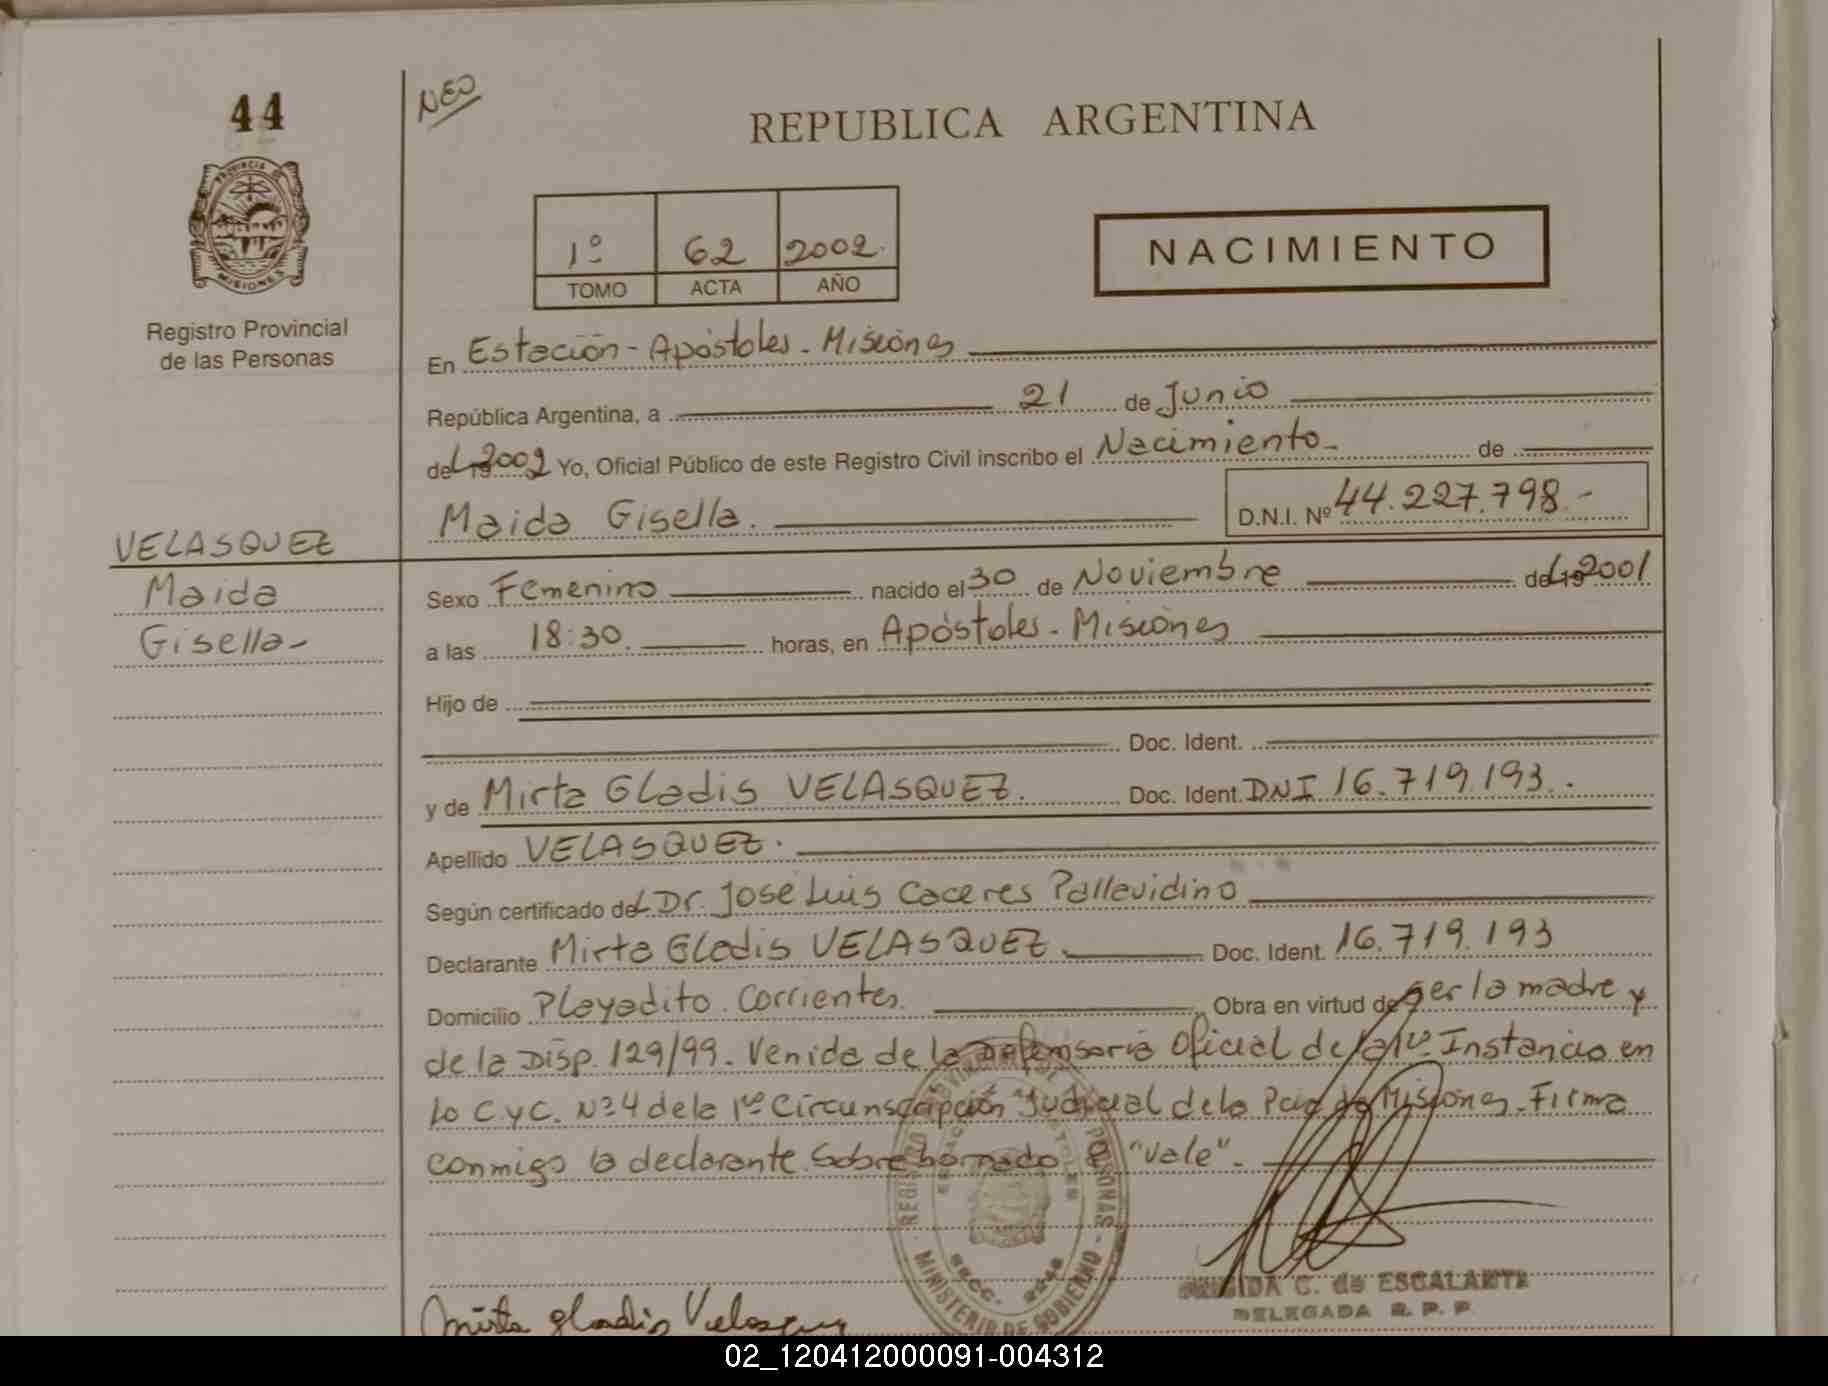 44
NEO
REPUBLICA ARGENTINA
PROVINCIA DE
MISIONES
1º 62 2002.
TOMO ACTA AÑO
NACIMIENTO
Registro Provincial
de las Personas
En Estación - Apóstoles - Misiones
República Argentina, a 21 de Junio
del 2002 Yo, Oficial Público de este Registro Civil inscribo el Nacimiento - de
Maida Gisella. D.N.I. Nº 44.227.798.-
VELASQUEZ
Maida
Gisella-
Sexo Femenino nacido el 30 de Noviembre del 2001
a las 18:30. horas, en Apóstoles - Misiones
Hijo de
Doc. Ident.
y de Mirta Gladis VELASQUEZ. Doc. Ident. DNI 16.719.193.
Apellido VELASQUEZ.
Según certificado del Dr. Jose Luis Caceres Pallavidino
Declarante Mirta Gladis VELASQUEZ. Doc. Ident. 16.719.193
Domicilio Playadito. Corrientes. Obra en virtud de ser la madre y
de la Disp. 129/99. Venida de la Defensoria Oficial de la 1º Instancia en
lo C.yC. Nº 4 de la 1º Circunscripción Judicial de la Pcia de Misiones. Firma
conmigo la declarante. Sobreborrado "Vale".-
REGISTRO PROVINCIAL DE LAS PERSONAS
MINISTERIO DE GOBIERNO
SECC.
C. de ESCALANTE
DELEGADA R. P. P.
Mirta Gladis Velasquez
02_120412000091-004312